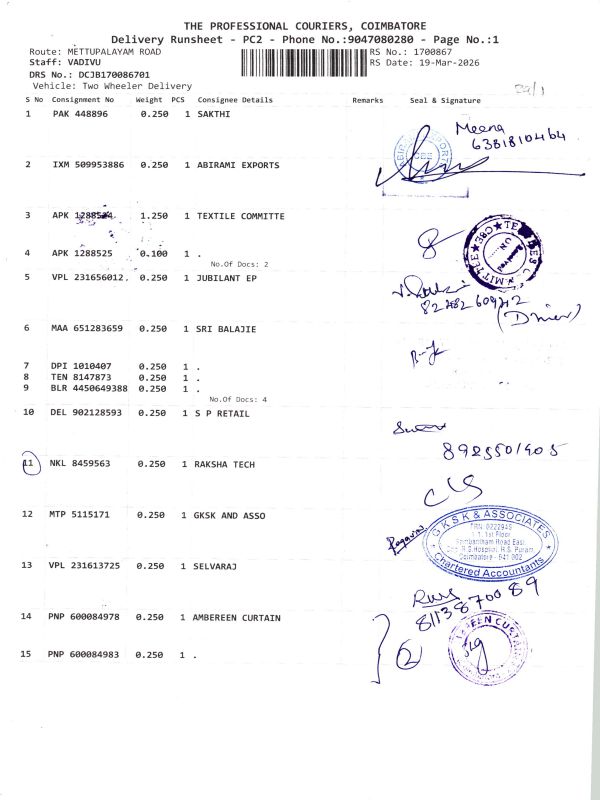 THE PROFESSIONAL COURIERS, COIMBATORE
Delivery Runsheet - PC2 - Phone No.:9047080280 - Page No.:1
Route: METTUPALAYAM ROAD RS No.: 1700867
Staff: VADIVU RS Date: 19-Mar-2026
DRS No.: DCJB170086701
Vehicle: Two Wheeler Delivery
29/1
S No Consignment No Weight PCS Consignee Details Remarks Seal & Signature
1 PAK 448896 0.250 1 SAKTHI
Meena
6381810464
2 IXM 509953886 0.250 1 ABIRAMI EXPORTS
3 APK 1288524 1.250 1 TEXTILE COMMITTE
4 APK 1288525 0.100 1 .
No.Of Docs: 2
5 VPL 231656012 0.250 1 JUBILANT EP
(Driver)
6 MAA 651283659 0.250 1 SRI BALAJIE
7 DPI 1010407 0.250 1 .
8 TEN 8147873 0.250 1 .
9 BLR 4450649388 0.250 1 .
No.Of Docs: 4
10 DEL 902128593 0.250 1 S P RETAIL
8925501905
11 NKL 8459563 0.250 1 RAKSHA TECH
12 MTP 5115171 0.250 1 GKSK AND ASSO
G K S K & ASSOCIATES
FRN 022294S
1st Floor
Road East,
R.S. Puram,
Coimbatore - 641 002
Chartered Accountants
13 VPL 231613725 0.250 1 SELVARAJ
8113870089
14 PNP 600084978 0.250 1 AMBEREEN CURTAIN
15 PNP 600084983 0.250 1 .
2